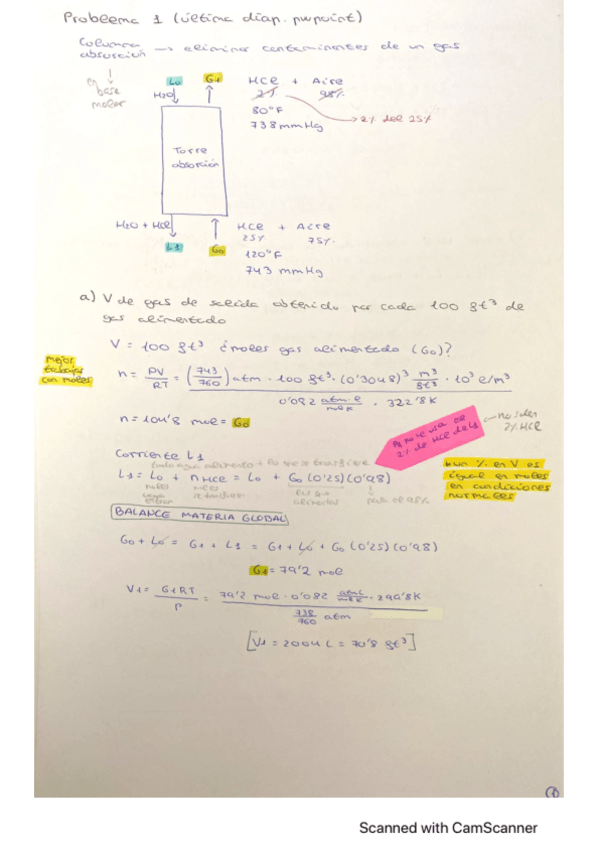 Problema 1 (última diap. pwpoint)
Columna absorción → eliminar contaminantes de un gas
en base molar
L0 G1 HCl + Aire
H2O 2% 98%
80°F → 2% del 25%
738 mmHg
Torre absorción
H2O + HCl HCl + Aire
25% 75%
L1 G0 120°F
743 mmHg
a) V de gas de salida obtenido por cada 100 ft³ de
gas alimentado
V = 100 ft³ ¿moles gas alimentado (G0)?
Mejor trabajar con moles
n = PV/RT = (743/760) atm · 100 ft³ · (0'3048)³ m³/ft³ · 10³ l/m³ / 0'082 atm·l/mol K · 322'8K
n = 1048 mol = G0
no 2% HCl
Corriente L1
L1 = L0 + nHCl = L0 + G0 (0'25)(0'98)
un % en V es igual en moles en condiciones normales
BALANCE MATERIA GLOBAL
G0 + L0 = G1 + L1 = G1 + L0 + G0 (0'25)(0'98)
G1 = 79'2 mol
V1 = G1RT/P = 79'2 mol · 0'082 atm·l/mol K · 299'8K / 738/760 atm
[V1 = 2004 L = 70'8 ft³]
1
Scanned with CamScanner